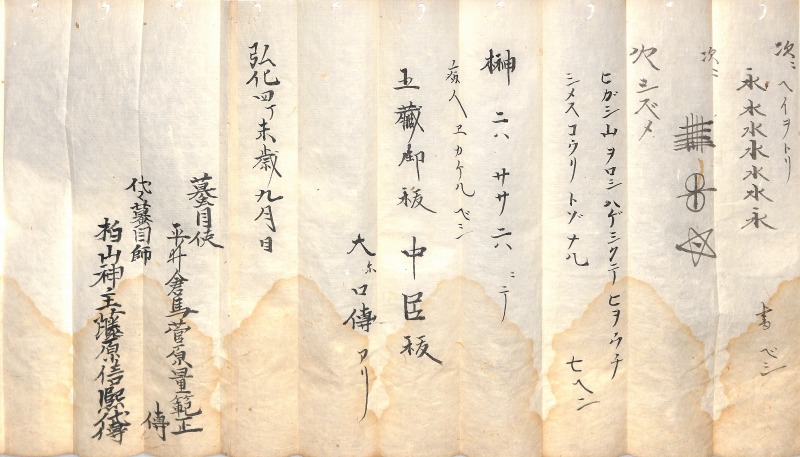 次ニ ヘイヲトリ
永水水水水水永 書ベシ
次ニ
次シズメ
ヒガシ山ヲロシハゲミクテヒヲウチ
シメスコウリトゾナル 七ヘン
榊 二八 ササ 二六 ニテ
病人エカケルベシ
五臓御祓 中臣祓
大 口傳アリ
弘化四丁未歳九月日
蟇目使
平井倉馬菅原量範正
傳
代々蟇目師
柏山神主藤原信熙傳